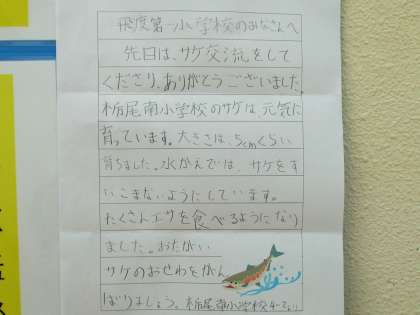 飛度第一小学校のみなさんへ
先日は、サケ交流をして
くださり、ありがとうございました。
栃尾南小学校のサケは、元気に
育っています。大きさは、5cmくらい
育ちました。水かえでは、サケをす
いこまないようにしています。
たくさんエサを食べるようになり
ました。おたがい
サケのおせわをがん
ばりましょう。栃尾南小学校4-2より